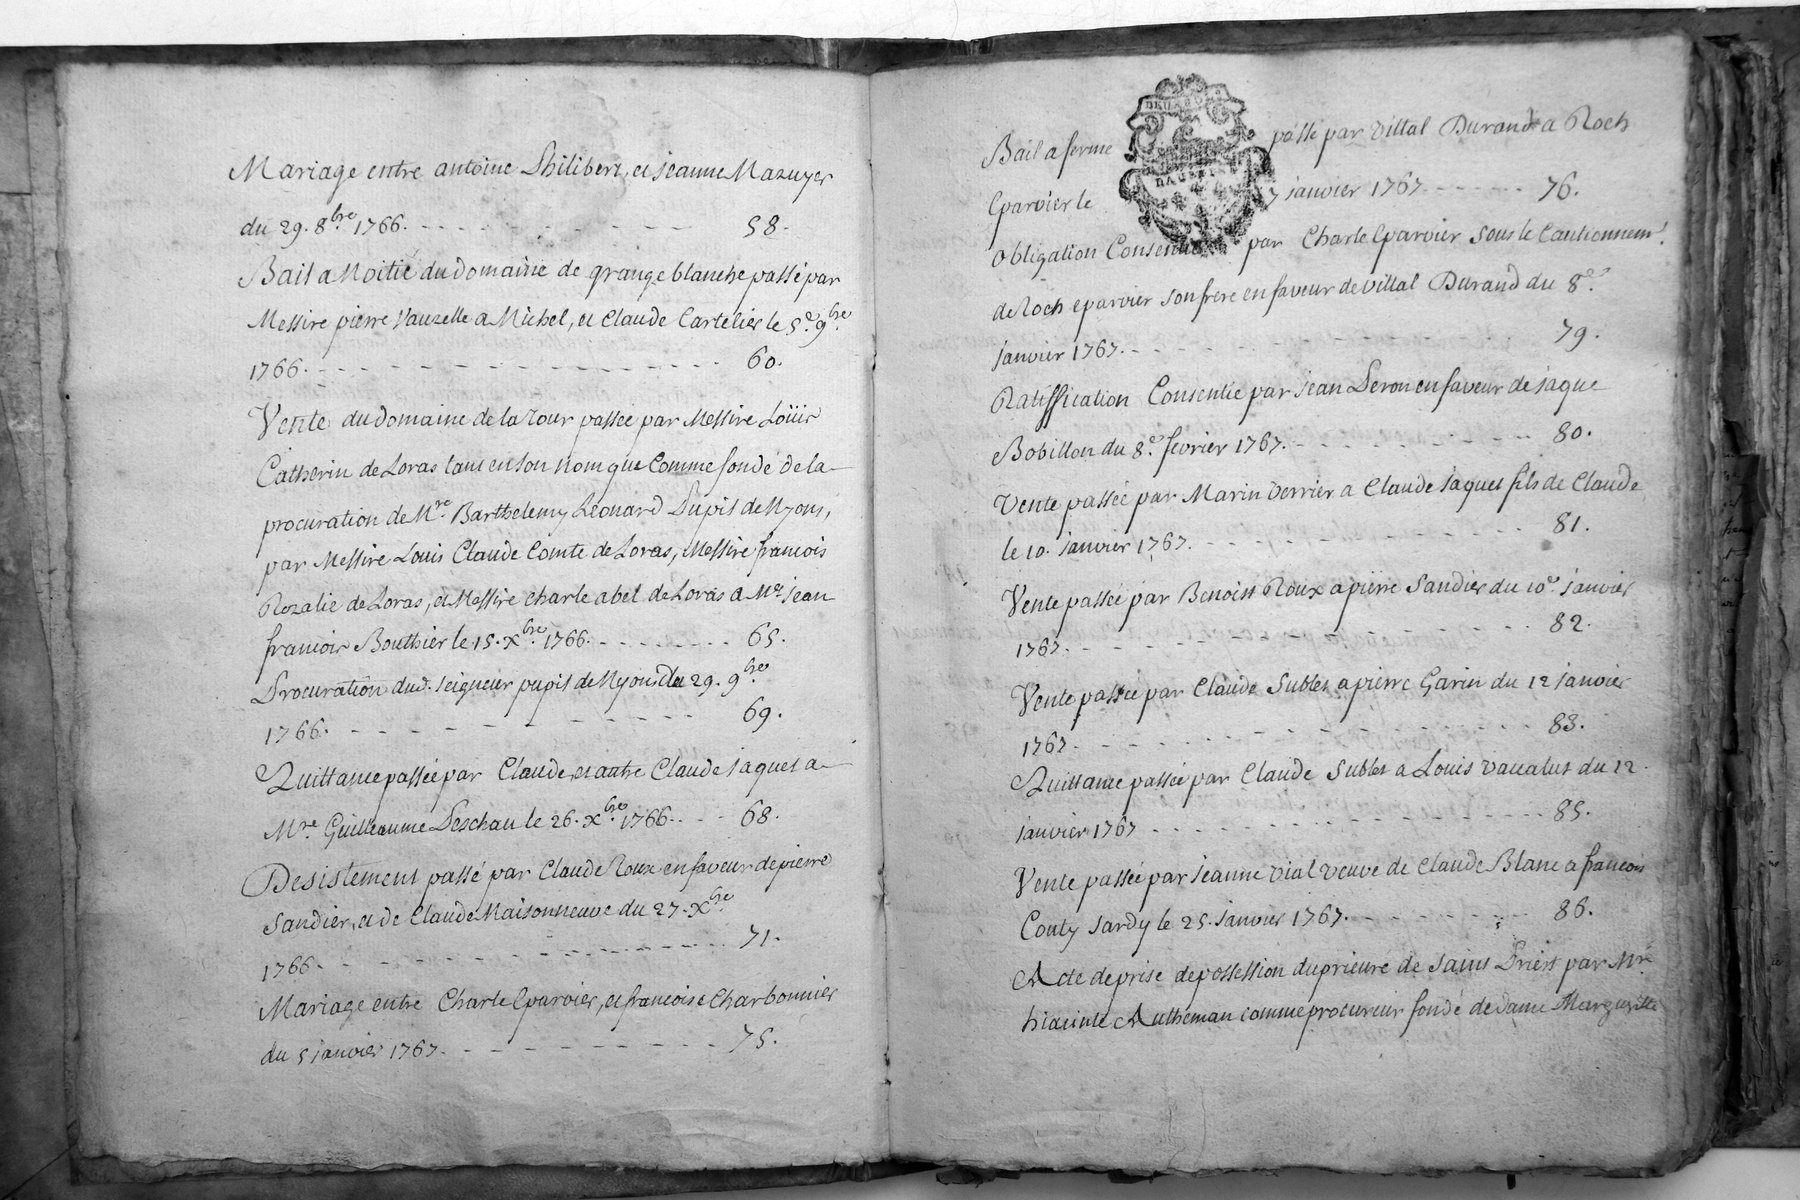 Mariage entre antoine Philibert, et jeanne Mazuyer
du 29. 8bre. 1766. - - - - - - - - - - - 58.
Bail a Moitié du domaine de grange blanche passé par
Messire pierre Vauzelle a Michel, et Claude Cartelier le 5e. 9bre.
1766. - - - - - - - - - - - - - - - - 60.
Vente du domaine de la tour passée par Messire Loüis
Catherin de Loras tant en son nom que Comme fondé de la
procuration de Mre. Barthelemy Léonard Pupil de Myons,
par Messire Louis Claude Comte de Loras, Messire francois
Rozalie de Loras, et Messire charle abel de Loras a Mr. jean
francois Bouthier le 15. Xbre. 1766. - - - - - - - - 65.
Procuration dud. seigneur pupil de Myons du 29. 9bre.
1766. - - - - - - - - - - 69.
Quittance passée par Claude, et autre Claude jaquet a
Mre. Guilleaume Peschau le 26. Xbre. 1766. - - - 68.
Desistement passé par Claude Roux en faveur de pierre
Sandier, et de Claude Maisonneuve du 27. Xbre.
1766. - - - - - - - - - - - - - - 71.
Mariage entre Charle Eparvier, et francoise Charbonnier
du 5 janvier 1767. - - - - - - - - - - 75.
Bail a ferme passé par Vittal Durand a Roch
Eparvier le 7 janvier 1767. - - - - - 76.
Obligation Consentie par Charle Eparvier sous le Cautionnemt.
de Roch eparvier son frere en faveur de Vittal Durand du 8e.
janvier 1767. - - - - - - - - - - - - - - 79.
Ratiffication Consentie par jean Peron en faveur de jaque
Bobillon du 8e. fevrier 1767. - - - - - - - - - - - 80.
Vente passée par Marin Verrier a Claude jaquet fils de Claude
le 10. janvier 1767. - - - - - - - - - - - - - 81.
Vente passée par Benoist Roux a pierre Sandier du 10e. janvier
1767. - - - - - - - - - - - - - - - - 82.
Vente passée par Claude Sublet a pierre Garin du 12 janvier
1767. - - - - - - - - - - - - - - - - 83.
Quittance passée par Claude Sublet a Louis Vaucalut du 12
janvier 1767 - - - - - - - - - - - - - - 85.
Vente passée par jeanne Vial veuve de Claude Blanc a francois
Couty Jardy le 25. janvier 1767. - - - - - - - - 86.
Acte de prise de possession du prieure de Saint Priest par Mre.
hiacinte Autheman comme procureur fondé de dame Margueritte